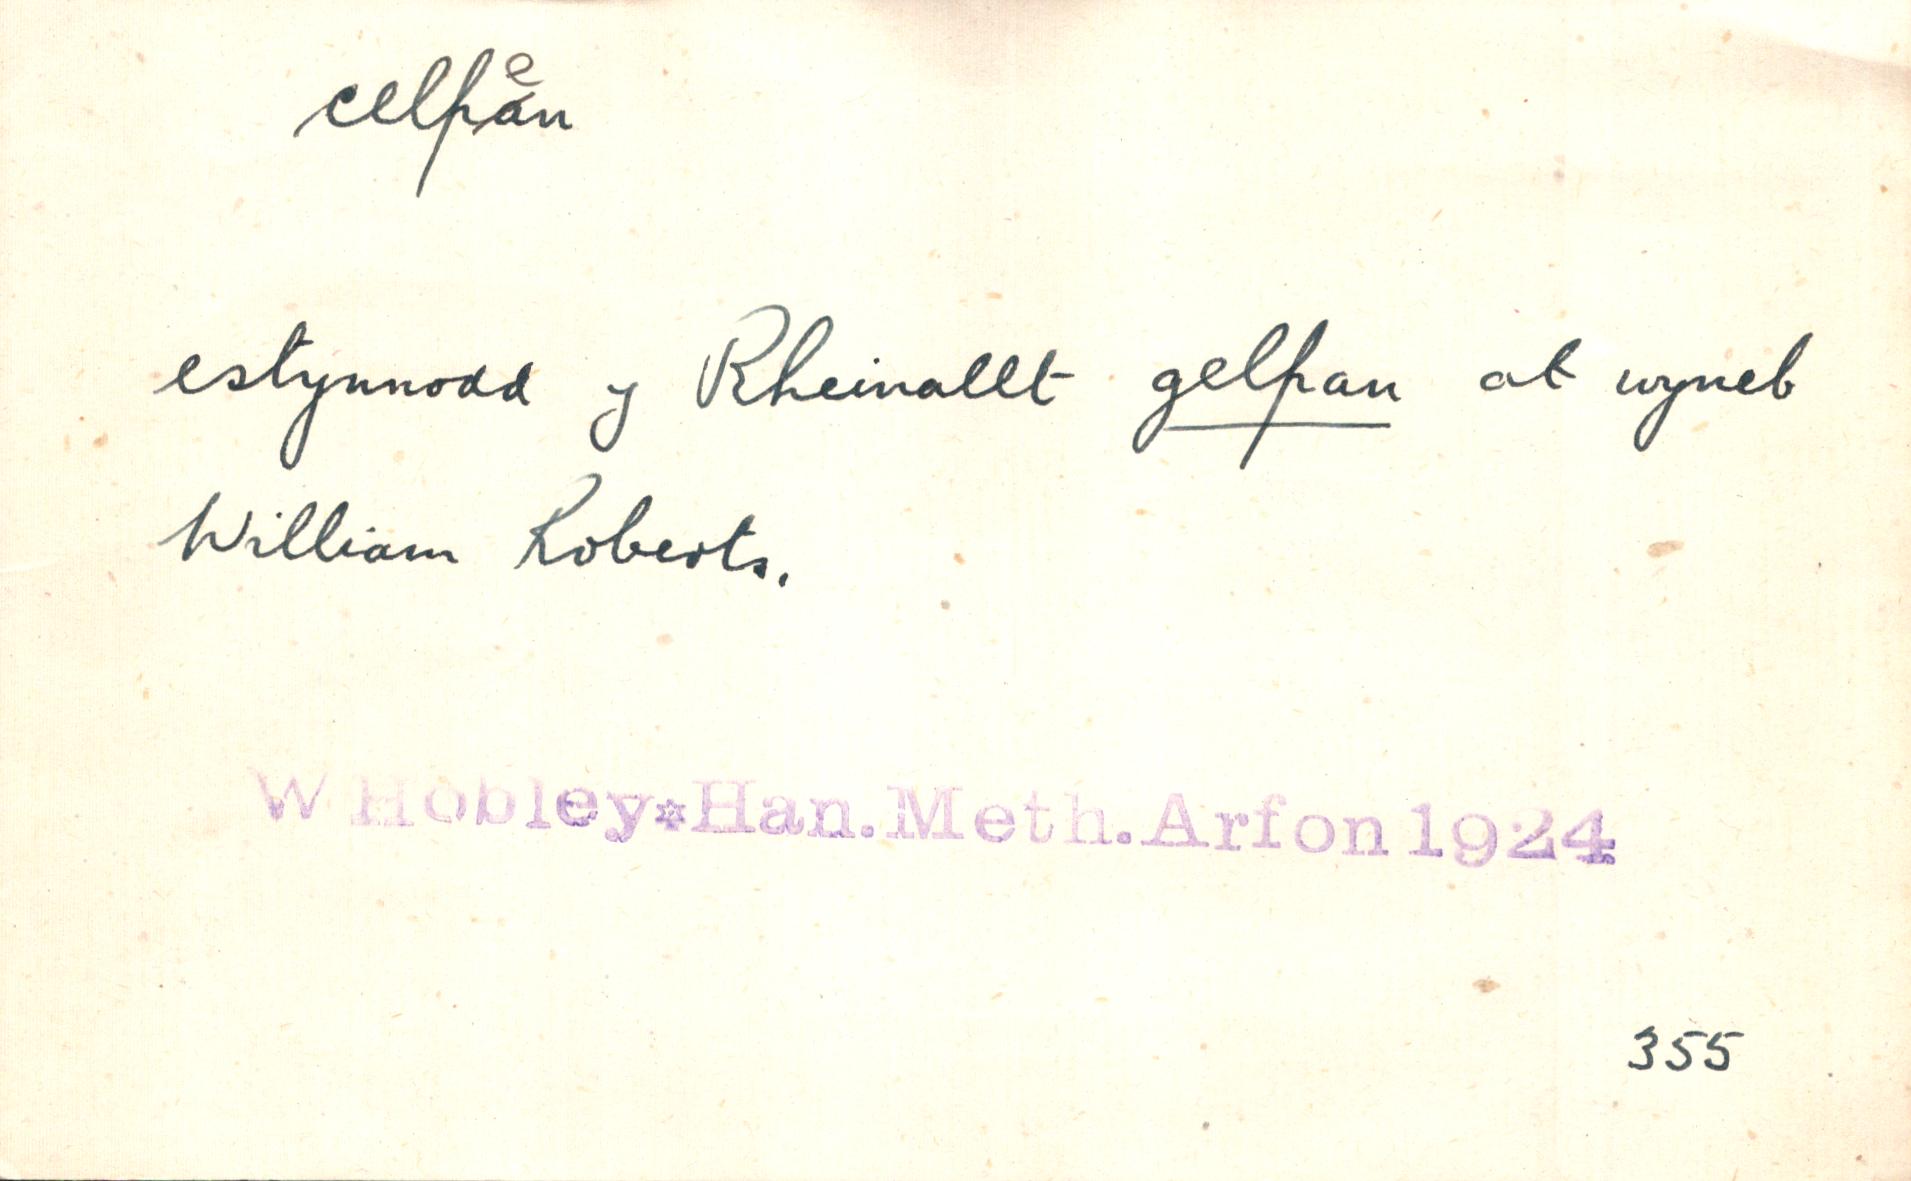 celpan
e
estynnodd y Rheinallt gelpan at wyneb
William Roberts.
W Hobley*Han.Meth.Arfon 1924
355